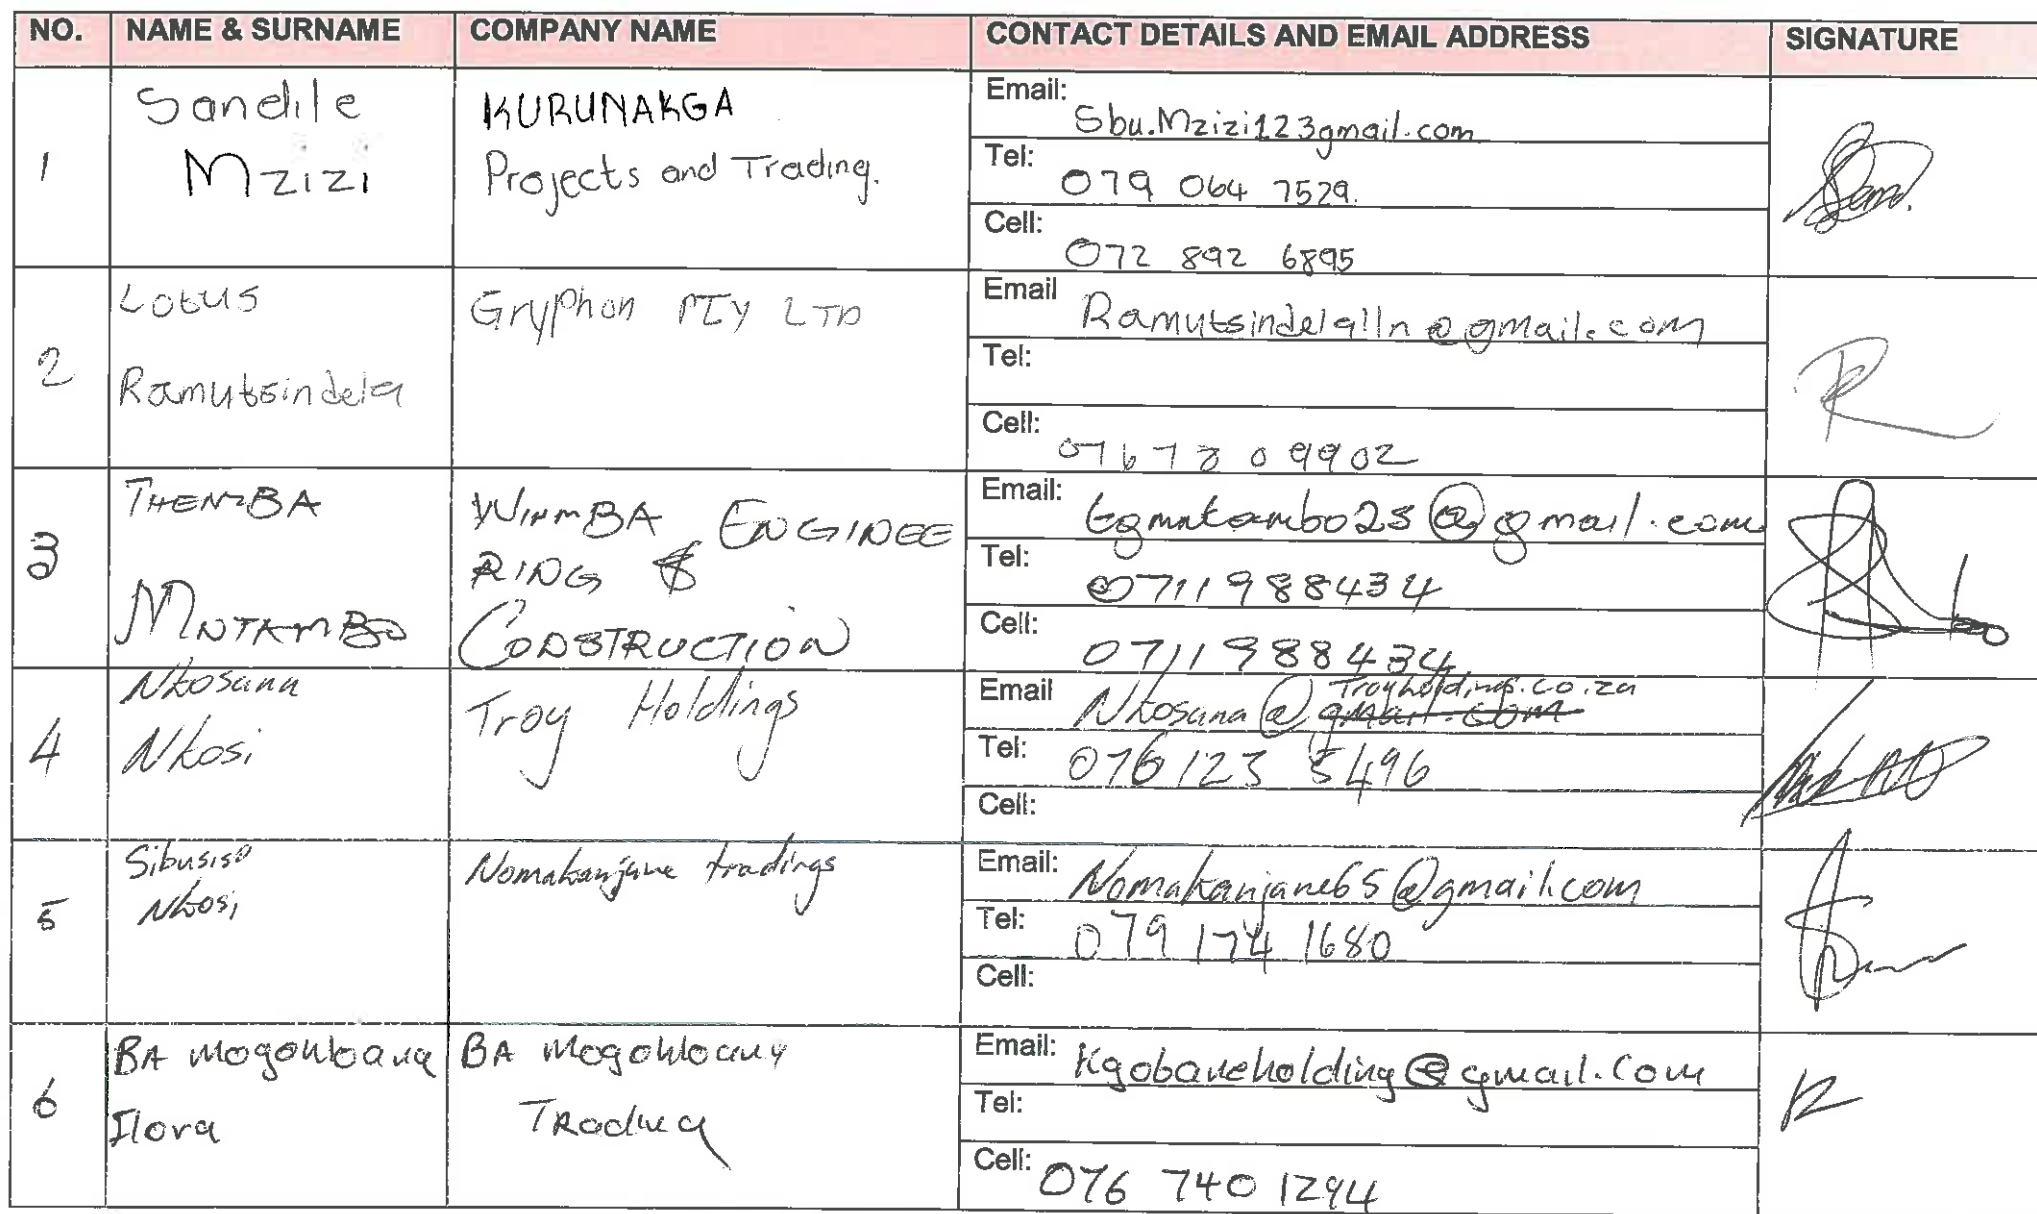 NO. NAME & SURNAME COMPANY NAME CONTACT DETAILS AND EMAIL ADDRESS SIGNATURE
1
Sandile
Mzizi
KURUNAKGA
Projects and Trading.
Email: Sbu.Mzizi123gmail.com
Tel: 079 064 7529.
Cell: 072 892 6895
2
Lotus
Ramutsindela
Gryphon PTY LTD
Email
Tel:
Cell:
3
THEMBA
MNTAMBO
WINMBA ENGINEE
RING &
CONSTRUCTION
Email: tgmntambo25@gmail.com
Tel: 0711988434
Cell: 0711988434
4
Nkosana
Nkosi
Troy Holdings
Email Nkosana@gmail.com
Troyholdings.co.za
Tel: 076 123 5496
Cell:
5
Sibusiso
Nkosi
Nomakanjane tradings
Email: Nomakanjane65@gmail.com
Tel: 079 174 1680
Cell:
6
BA
BA
Trading
Email: Kgobaneholding@gmail.Com
Tel:
Cell: 076 740 1294